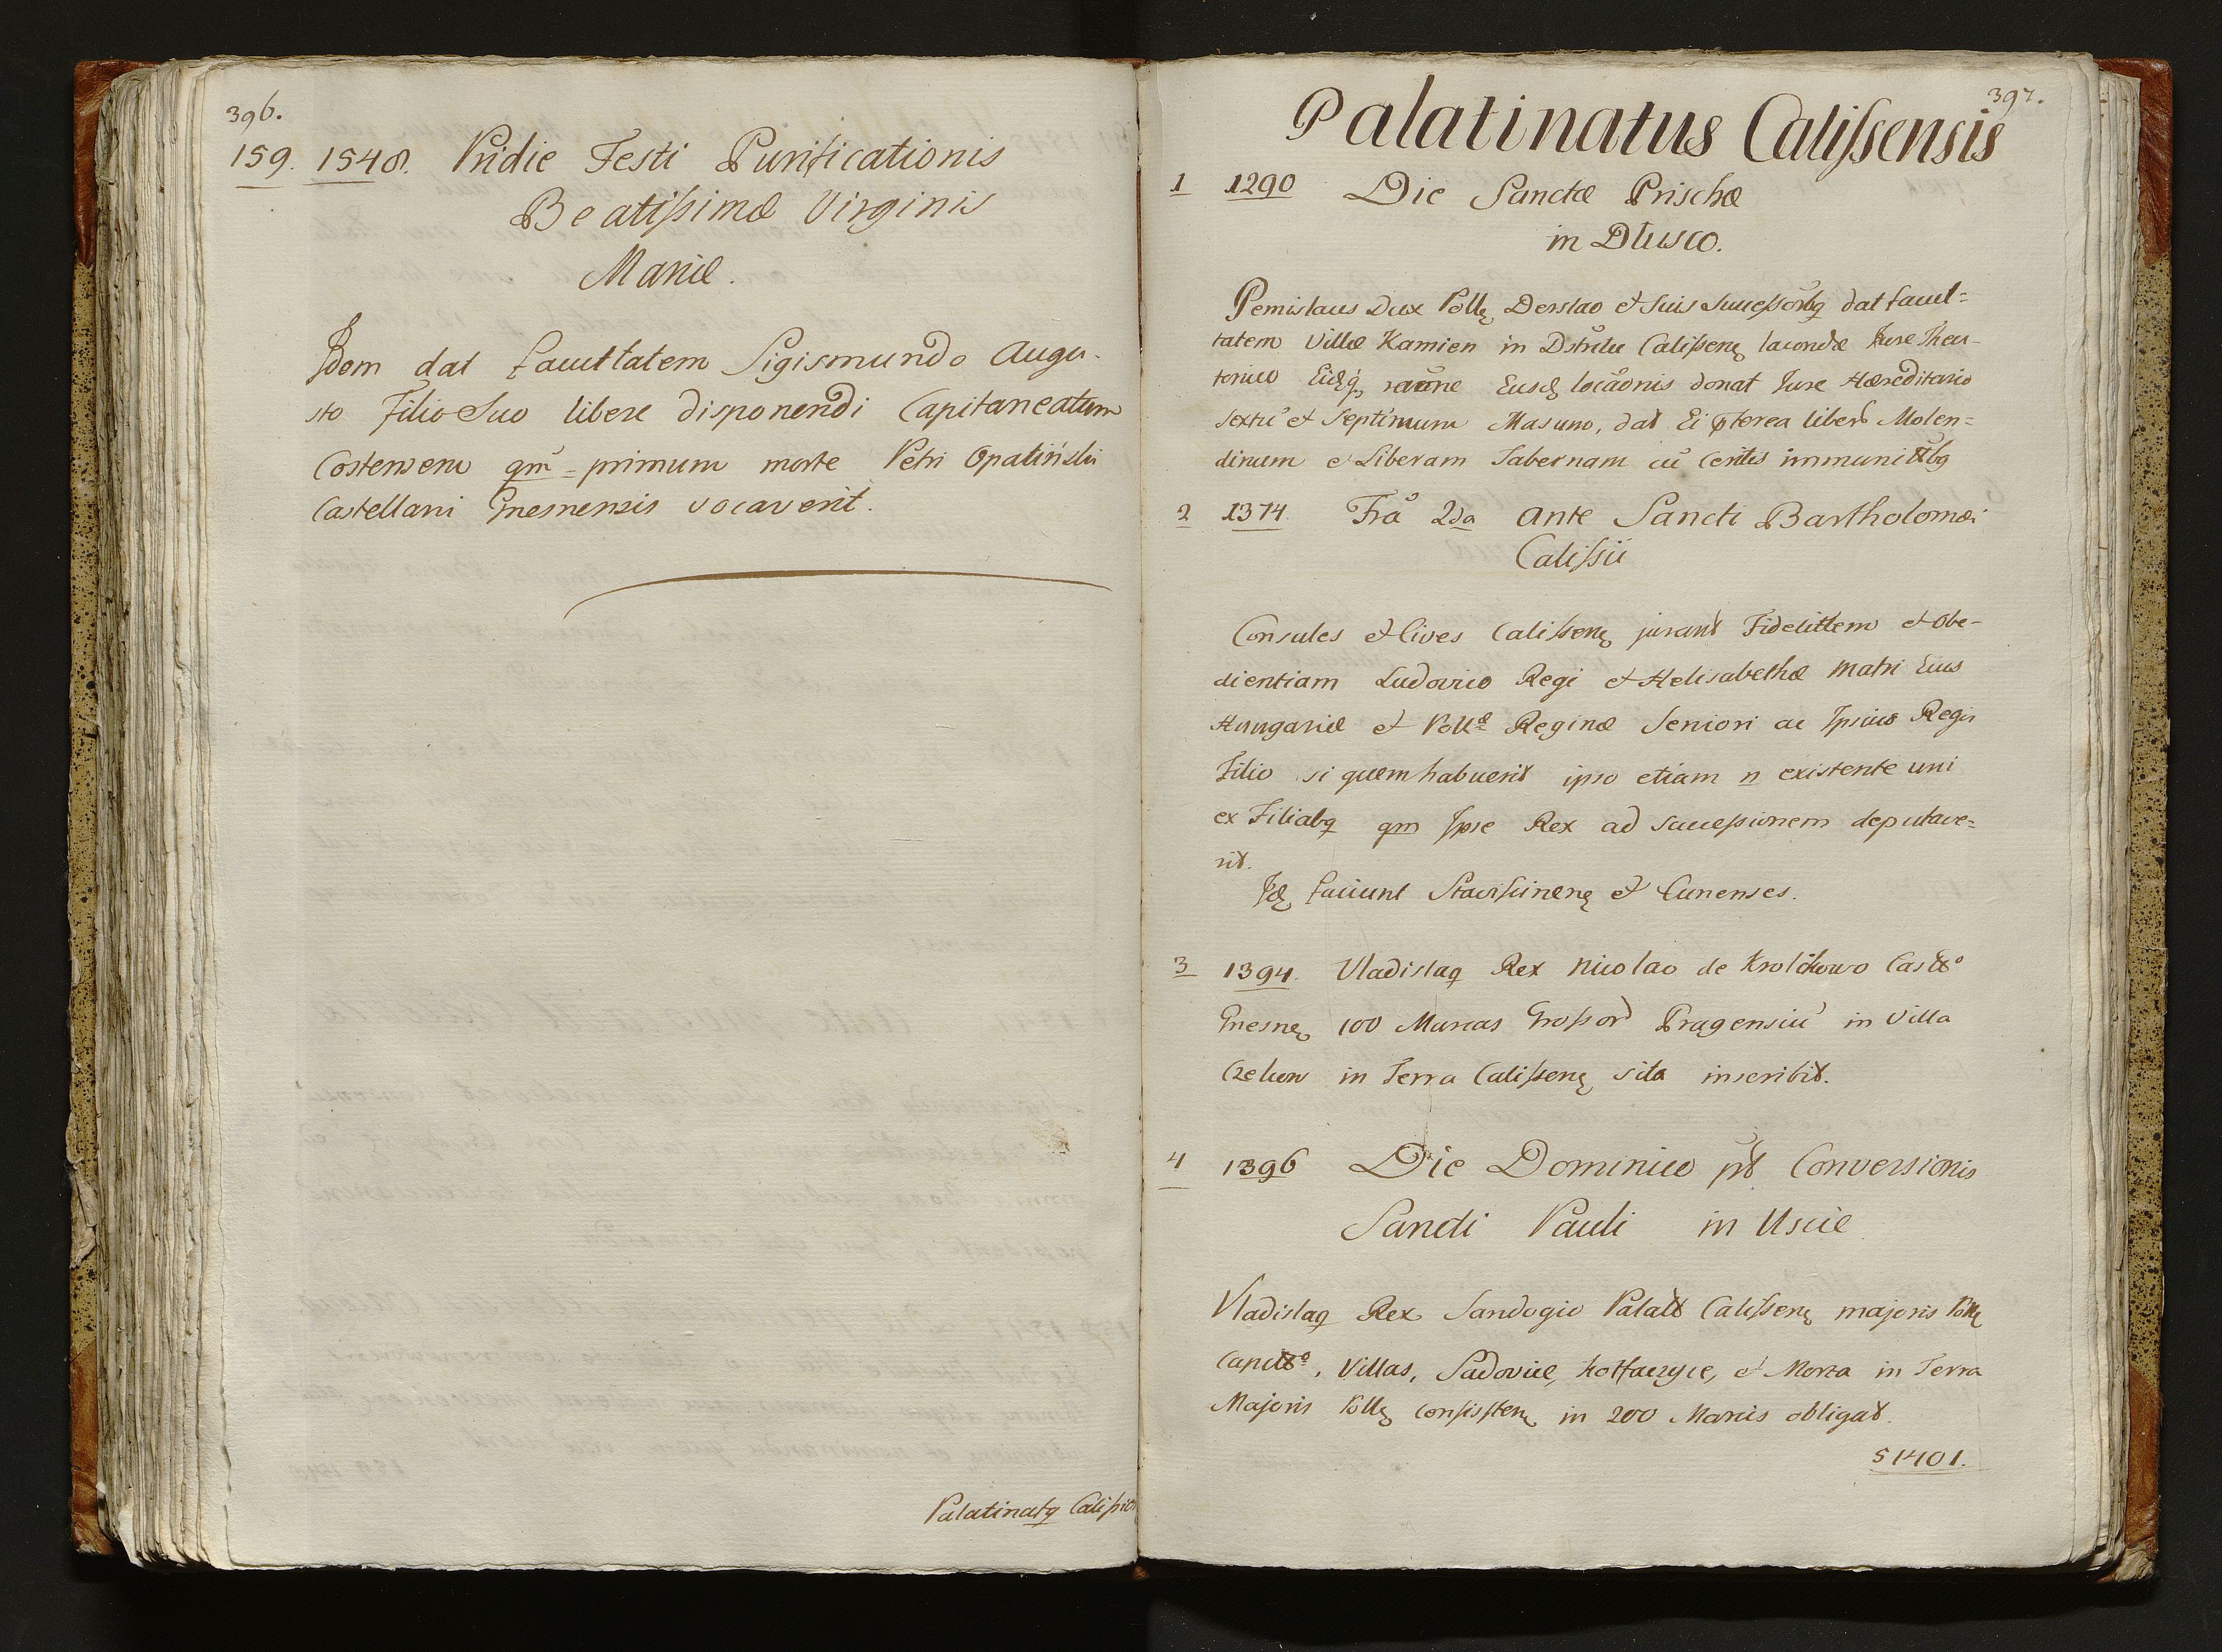 396.
159. 1548. Pridie Festi Purificationis
Beatißimæ Virginis
Mariæ.
Idem dat facultatem Sigismundo Augu-
sto Filio Suo libere disponendi Capitaneatum
Costensem qm̄-primum morte Petri Opaliński
Castellani Gnesnensis vocaverit.
Palatinatq Calißien
397.
Palatinatus Calißensis
1 1290 Die Sanctæ Prischæ
in Dlusco.
Pemislaus Dux Pollę Derslao et Suis Succeßorībq dat facul=
tatem Villæ Kamien in Dstrictu Calißenę locandæ Jure Theu-
tonico Eidq raōne Eusdę locāonis donat Jure Hæreditario
Sextū et Septimum Masuno, dat Ei pterea liberū Molen=
dinum et Liberam Tabernam cū certis immunittbq
2 1374. Frā 2da ante Sancti Bartholomæi
Calißii
Consules et Cives Calißenę jurant Fidelittem et Obe-
dientiam Ludovico Regi et Helisabethæ Matri Eius
Hungariæ et Pollæ Reginæ Seniori ac Ipsius Regis
Filio si quem habuerit ipso etiam n existente uni
ex Filiabq qm Ipse Rex ad Succeßionem deputave=
rit.
Idę faciunt Stavißinenę et Cunenses.
3 1394. Vladislaq Rex Nicolao de Krolikowo Castto
Gnesnę 100 Marcas Großorū Pragensiū in Villa
Czelun in Terra Calißenę sita inscribit.
4 1396 Die Dominico pt Conversionis
Sancti Pauli in Uscie
Vladislaq Rex Sandogio Palatt Calißenę majoris Pollę
Capitto, Villas, Sadovice, Kottaczyce, et Morza in Terra
Majoris Pollę Consistenę in 200 Marcis obligat.
5 1401.